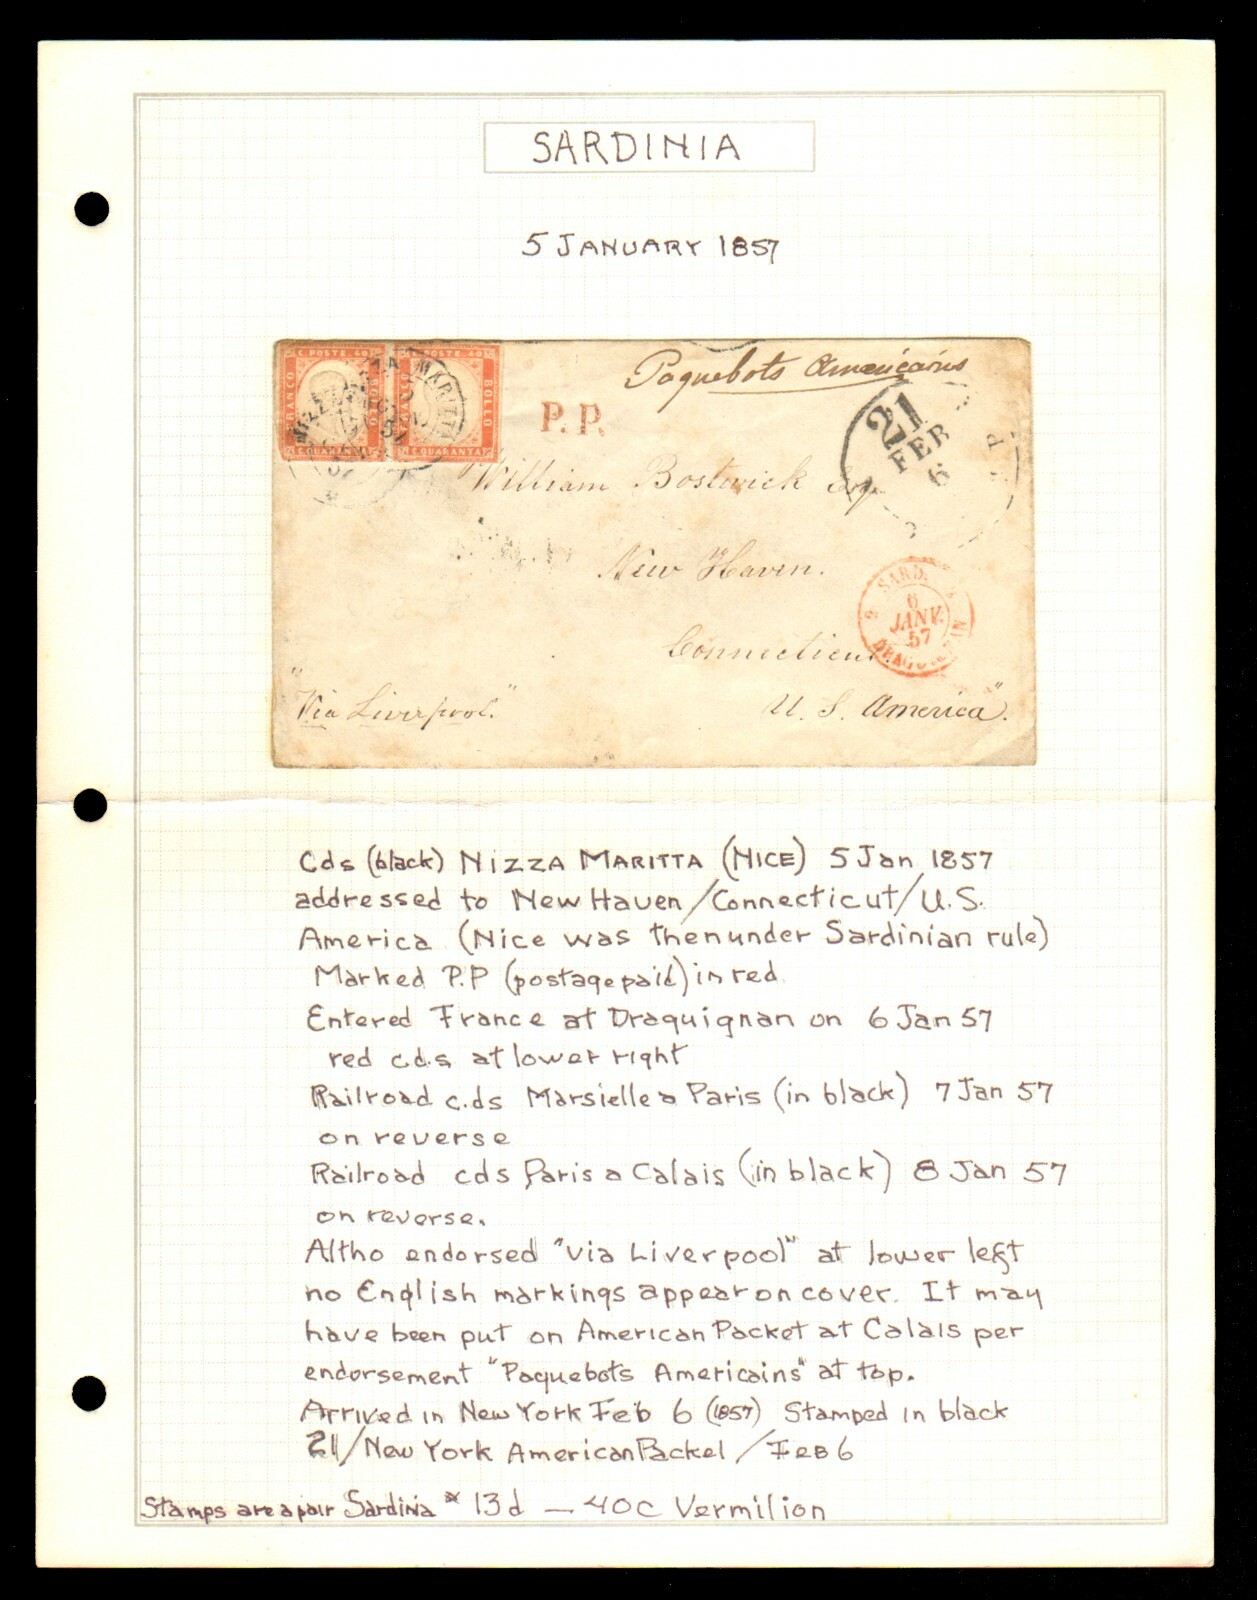 SARDINIA
5 JANUARY 1857
C. POSTE 40
FRANCO
BOLLO
C QUARANTA
POSTE 40
BOLLO
C QUARANTA
MARITTA
Paquebots Américains
P.P.
21
FEB
6
P
William Bostwick Esq
New Haven.
Connecticut.
U. S. America".
"Via Liverpool."
SARD.
6
JANV.
57
Cds (black) NIZZA MARITTA (NICE) 5 Jan 1857
addressed to New Haven/Connecticut/U.S.
America (Nice was then under Sardinian rule)
Marked P.P (postage paid) in red
Entered France at Draquignan on 6 Jan 57
red c.d.s at lower right
Railroad c.ds Marsielle a Paris (in black) 7 Jan 57
on reverse
Railroad cds Paris a Calais (in black) 8 Jan 57
on reverse.
Altho endorsed "via Liverpool" at lower left
no English markings appear on cover. It may
have been put on American Packet at Calais per
endorsement "Paquebots Americains" at top.
Arrived in New York Feb 6 (1857) Stamped in black
21/New York American Packet/FEB 6
Stamps are a pair Sardinia # 13d — 40c Vermilion